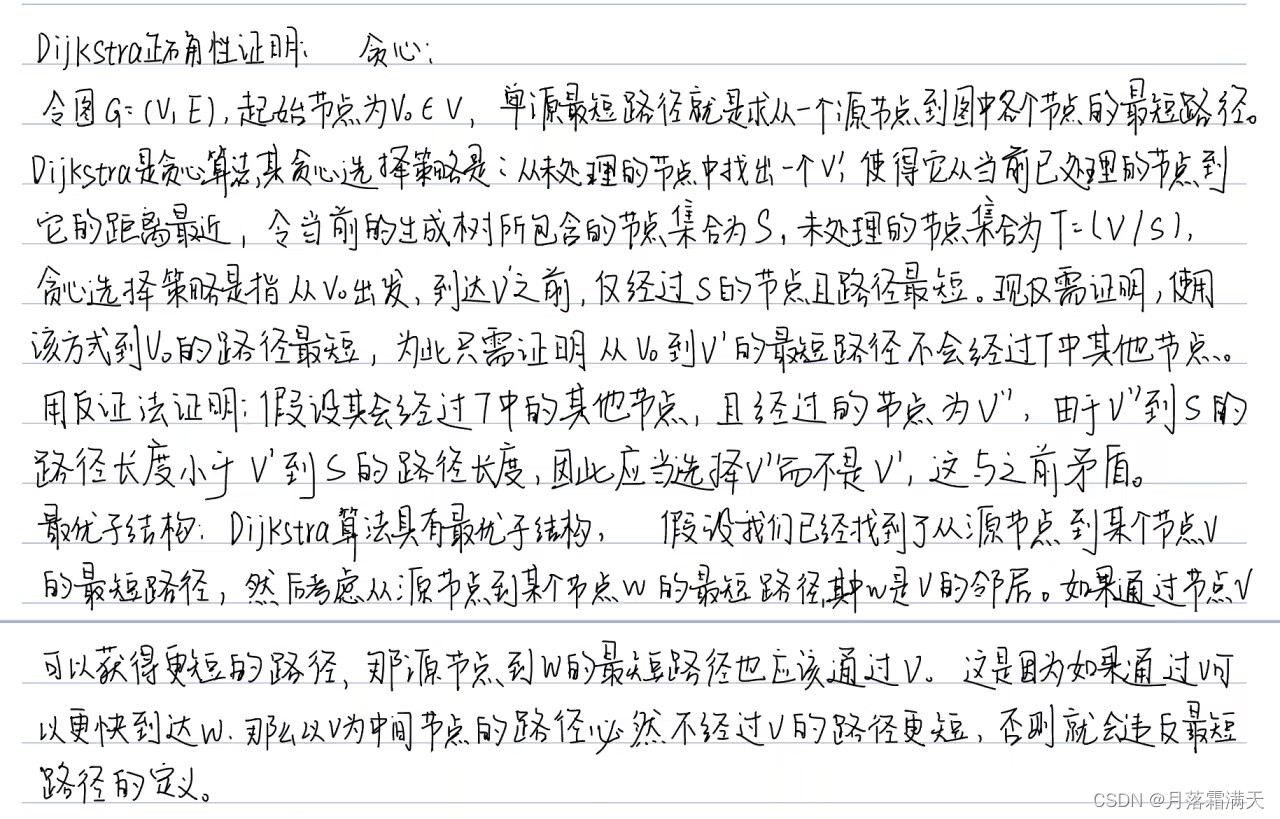 Dijkstra正确性证明: 贪心:
令图G=(V,E),起始节点为V₀∈V,单源最短路径就是求从一个源节点到图中各个节点的最短路径。
Dijkstra是贪心算法,其贪心选择策略是:从未处理的节点中找出一个V',使得它从当前已处理的节点到
它的距离最近,令当前的生成树所包含的节点集合为S,未处理的节点集合为T=(V/S),
贪心选择策略是指从V₀出发,到达V'之前,仅经过S的节点且路径最短。现仅需证明,使用
该方式到V₀的路径最短,为此只需证明从V₀到V'的最短路径不会经过T中其他节点。
用反证法证明:假设其会经过T中的其他节点,且经过的节点为V",由于V"到S的
路径长度小于V'到S的路径长度,因此应当选择V"而不是V',这与之前矛盾。
最优子结构:Dijkstra算法具有最优子结构, 假设我们已经找到了从源节点到某个节点V
的最短路径,然后考虑从源节点到某个节点W的最短路径,其中W是V的邻居。如果通过节点V
可以获得更短的路径,那源节点到W的最短路径也应该通过V。这是因为如果通过V可
以更快到达W.那么以V为中间节点的路径必然不经过V的路径更短,否则就会违反最短
路径的定义。
CSDN @月落霜满天